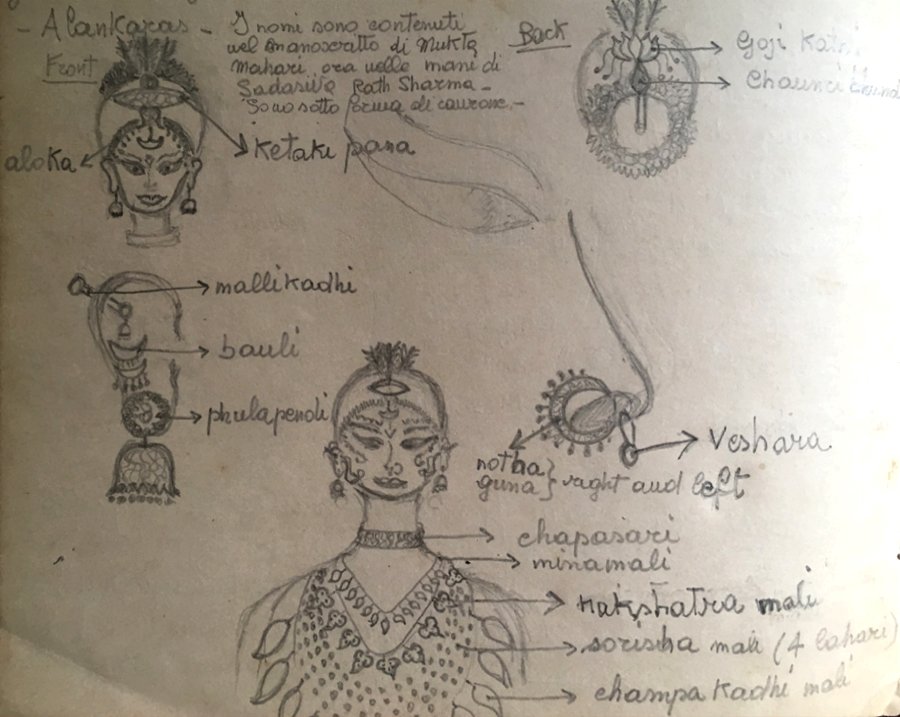 - Alankaras -
I nomi sono contenuti
nel manoscritto di Mukta
Mahari, ora nelle mani di
Sadasiva Rath Sharma -
Sono sotto forma di canzone. -
Front
Back
Goji
Chaunri
aloka
Ketaki pana
mallikadhi
bauli
phulapendi
Veshara
notha
guna } right and left
chapasari
minamali
nakshatra mali
sorisha mali (4 lahari)
champa Kadhi mali